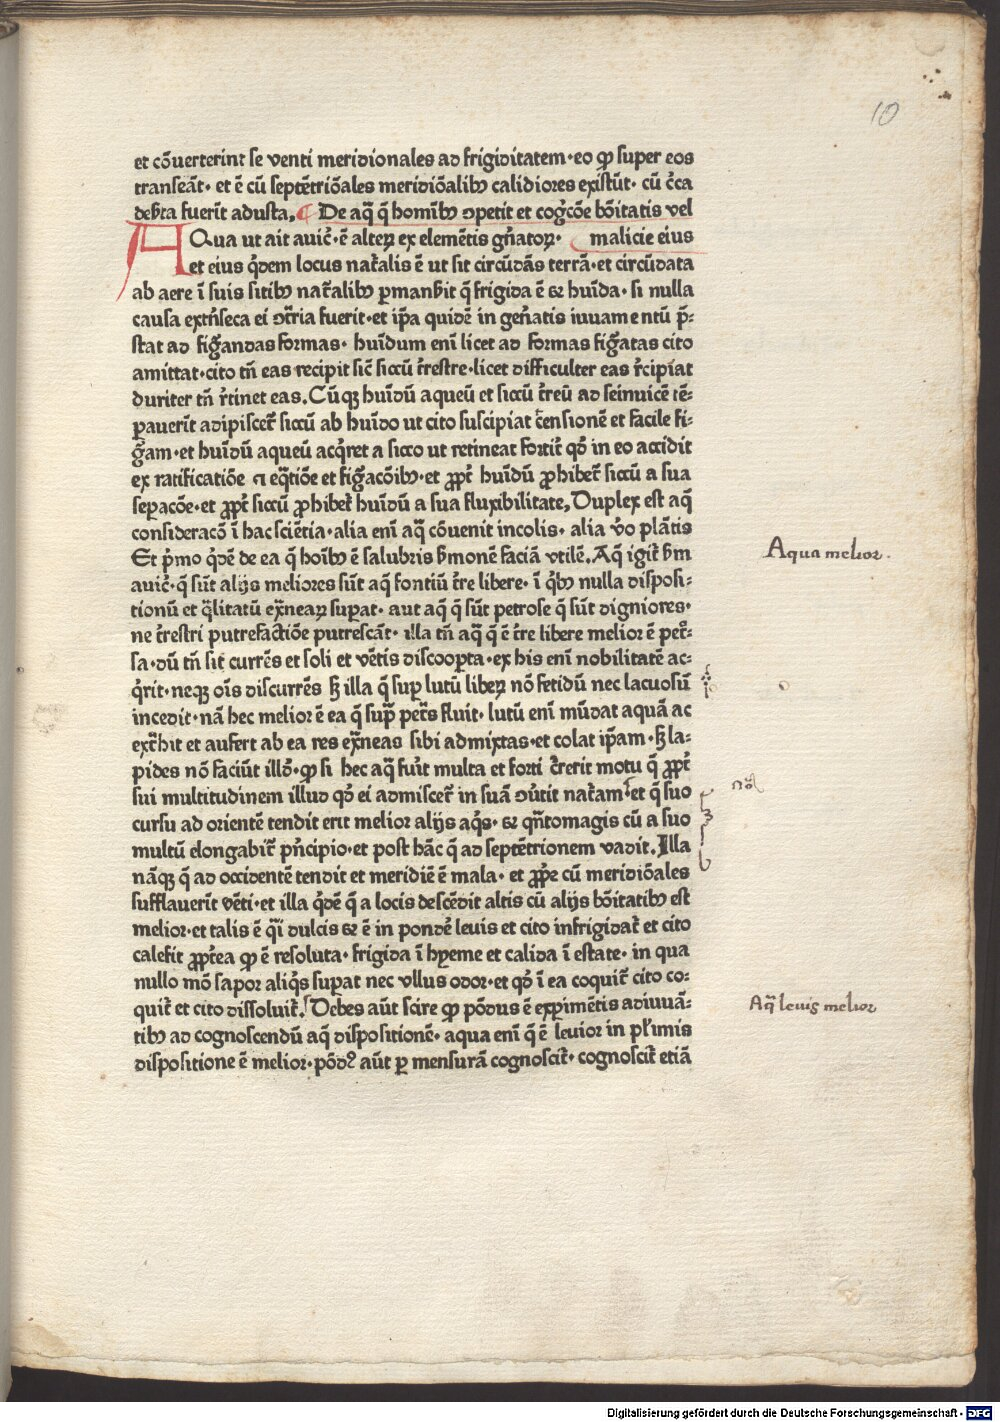 10
et cōuerterint se venti meridionales ad frigiditatem·eo ꝙ super eos
transeāt· et ē cū septētriōales meridiōalibꝫ calidiores existūt· cū c̄ca
deb̄ta fuerīt adusta. De aq̄ q̄ homībꝫ ꝯpetit et coḡcōe bōitatis vel
AQua ut ait auic̄·ē alteꝝ ex elemētis gn̄atoꝝ· malicie eius
et eius q̄dem locus nat̄alis ē ut sit circūdās terrā·et circūdata
ab aere ī suis sitibꝫ nat̄alibꝫ ꝑmanb̄it q̄ frigida ē ⁊ huīda· si nulla
causa extn̄seca ei ꝯt̄ria fuerit·et ip̄a quidē in gen̄atis iuuamentū p̄-
stat ad fiḡandas formas· huīdum enī licet ad formas fiḡatas cito
amittat·cito tn̄ eas recipit sic̄ siccū t̄restre·licet difficulter eas r̄cipiat
duriter tn̄ r̄tinet eas. Cūqꝫ huīdū aqueū et siccū t̄reū ad seinuicē tē-
ꝑauerīt adipiscet̄ siccū ab huīdo ut cito suscipiat t̄ensionē et facile fi-
ḡam·et huīdū aqueū acq̄ret a sicco ut retineat fortit̄ qd̄ in eo accidit
ex ratificatiōe ⁊ eq̄tiōe et fiḡacōibꝫ·et ꝓpt̄ huīdū ꝓhibet̄ siccū a sua
seꝑacōe·et ꝓpt̄ siccū ꝓhibet̄ huīdū a sua fluxibilitate. Duplex est aq̄
consideracō ī hac sciētia·alia enī aq̄ cōuenit incolis· alia v̄o plātis
Et p̄mo q̄dē de ea q̄ hoībꝫ ē salubris s̄monē faciā vtilē. Aq̄ igit̄ s̄m
auic̄·q̄ sūt alijs meliores sūt aq̄ fontiū t̄re libere· ī qb̄ꝫ nulla disposi-
tionū et q̄litatū ex̄neaꝝ suꝑat· aut aq̄ q̄ sūt petrose q̄ sūt digniores·
ne t̄restri putrefactiōe putrescāt· illa tn̄ aq̄ q̄ ē t̄re libere melior ē pet̄-
sa·dū tn̄ sit currēs et soli et vētis discooꝑta·ex his enī nobilitatē ac-
q̄rit·neqꝫ oīs discurrēs sꝫ illa q̄ suꝑ lutū libeꝝ nō fetidū nec lacuosū
incedit·nā hec melior ē ea q̄ suꝑ pet̄s fluit· lutū enī mūdat aquā ac
ext̄hit et aufert ab ea res ex̄neas sibi admixtas·et colat ip̄am·sꝫ la-
pides nō faciūt illō·ꝙ si hec aq̄ fuīt multa et forti c̄rerit motu q̄ ꝓpt̄
sui multitudinem illud qd̄ ei admiscet̄ in suā ꝯūtit nat̄am et q̄ suo
cursu ad orientē tendit erit melior alijs aq̄s· ⁊ qn̄tomagis cū a suo
multū elongabit̄ pn̄cipio·et post hāc q̄ ad septētrionem vadit. Illa
nāqꝫ q̄ ad occidentē tendit et meridiē ē mala· et ꝓp̄e cū meridiōales
sufflauerīt vēti·et illa q̄dē q̄ a locis descēdit altis cū alijs bōitatibꝫ est
melior·et talis ē q̄i dulcis ⁊ ē in pond̄e leuis et cito infrigidat̄ et cito
calefit ꝓpt̄ea ꝙ ē resoluta· frigida ī hyeme et calida ī estate· in qua
nullo mō sapor aliq̄s suꝑat nec vllus odor·et qd̄ ī ea coquit̄ cito co-
quit̄ et cito dissoluit̄. Debes aūt scire ꝙ pōdus ē exꝑimētis adiuuā-
tibꝫ ad cognoscendū aq̄ dispositionē· aqua enī q̄ ē leuior in pl̄imis
dispositione ē melior·pōdꝰ aūt ꝑ mensurā cognoscit̄· cognoscit̄ etiā
Aqua melior.
Aq̄ leuis melior
Digitalisierung gefördert durch die Deutsche Forschungsgemeinschaft - DFG